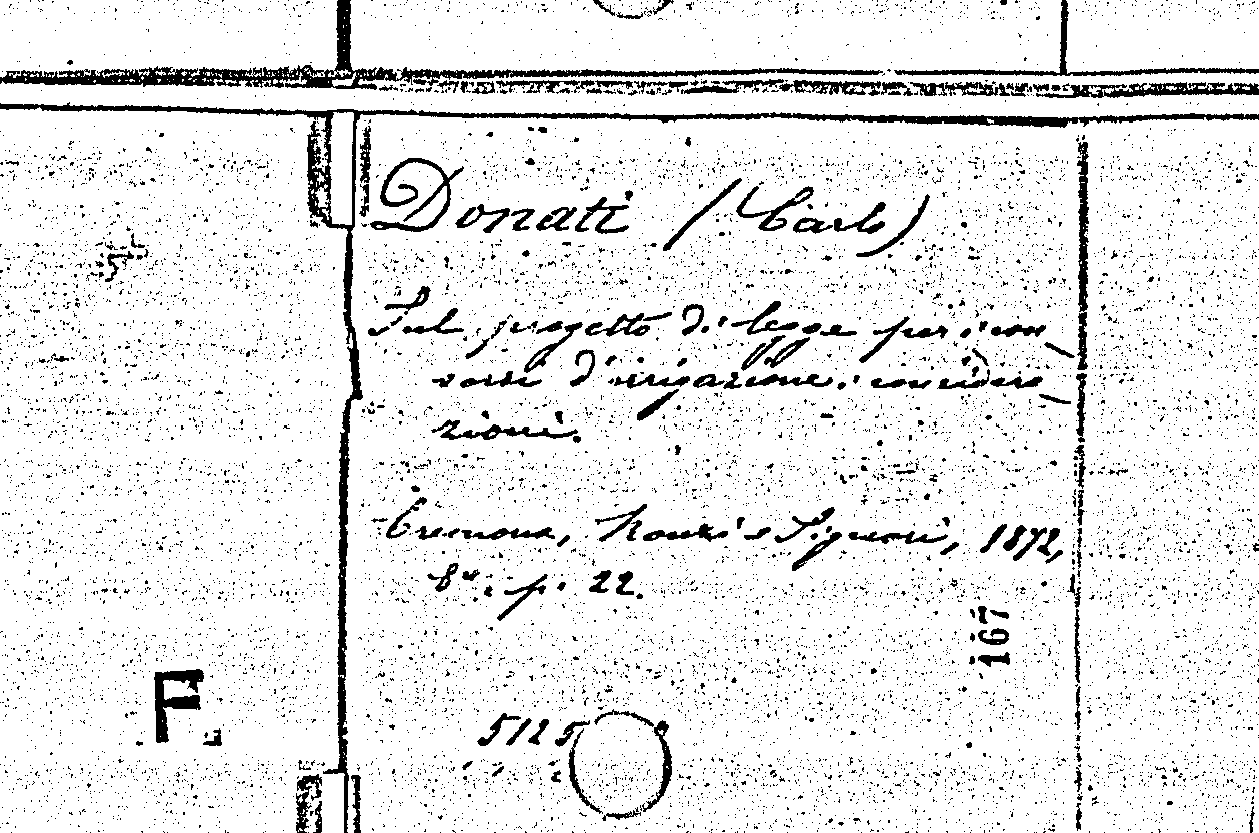 Donati (Carlo)
Sul progetto di legge per i con-
sorsi d'irrigazione: considera-
zioni.
Cremona, Ronzi e Signori, 1872,
8º. p. 22.
167
F.
5125